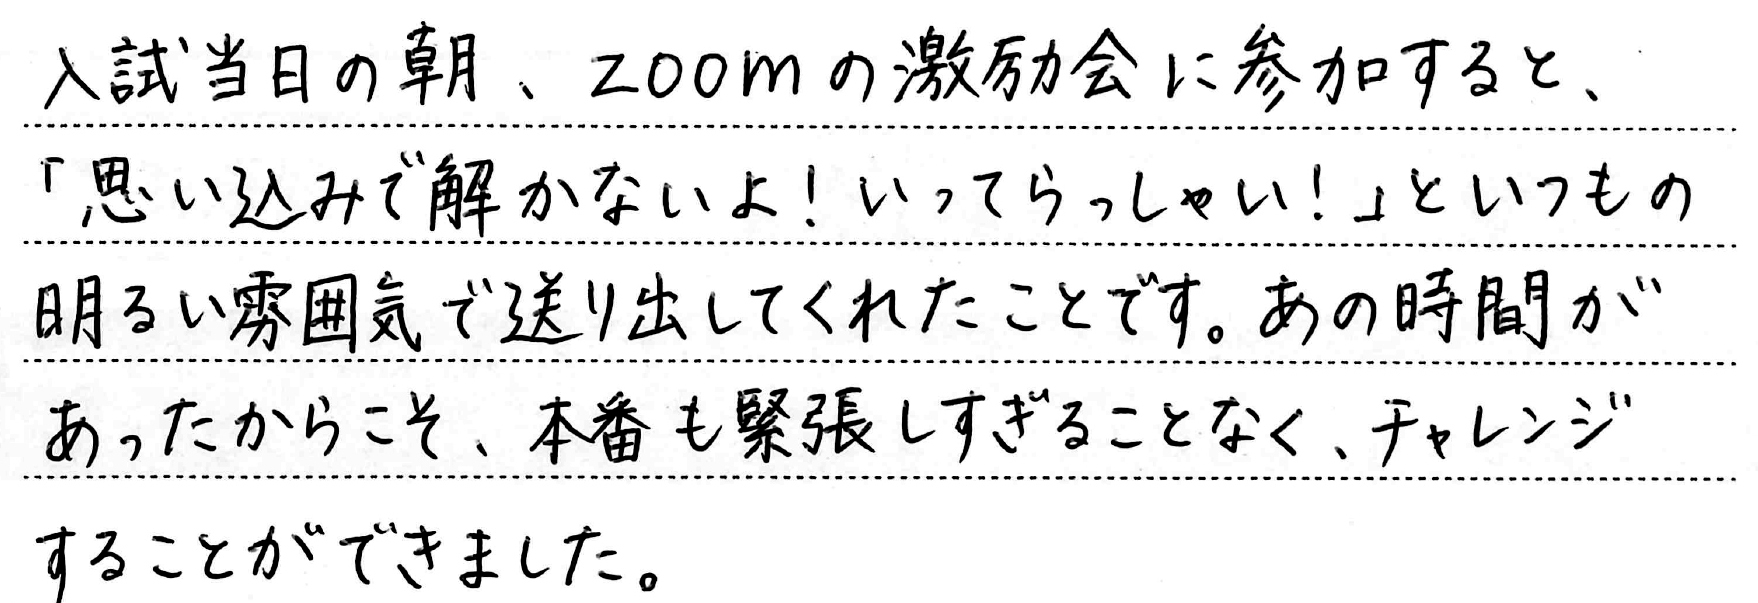 入試当日の朝、zoomの激励会に参加すると、
「思い込みで解かないよ！いってらっしゃい！」といつもの
明るい雰囲気で送り出してくれたことです。あの時間が
あったからこそ、本番も緊張しすぎることなく、チャレンジ
することができました。